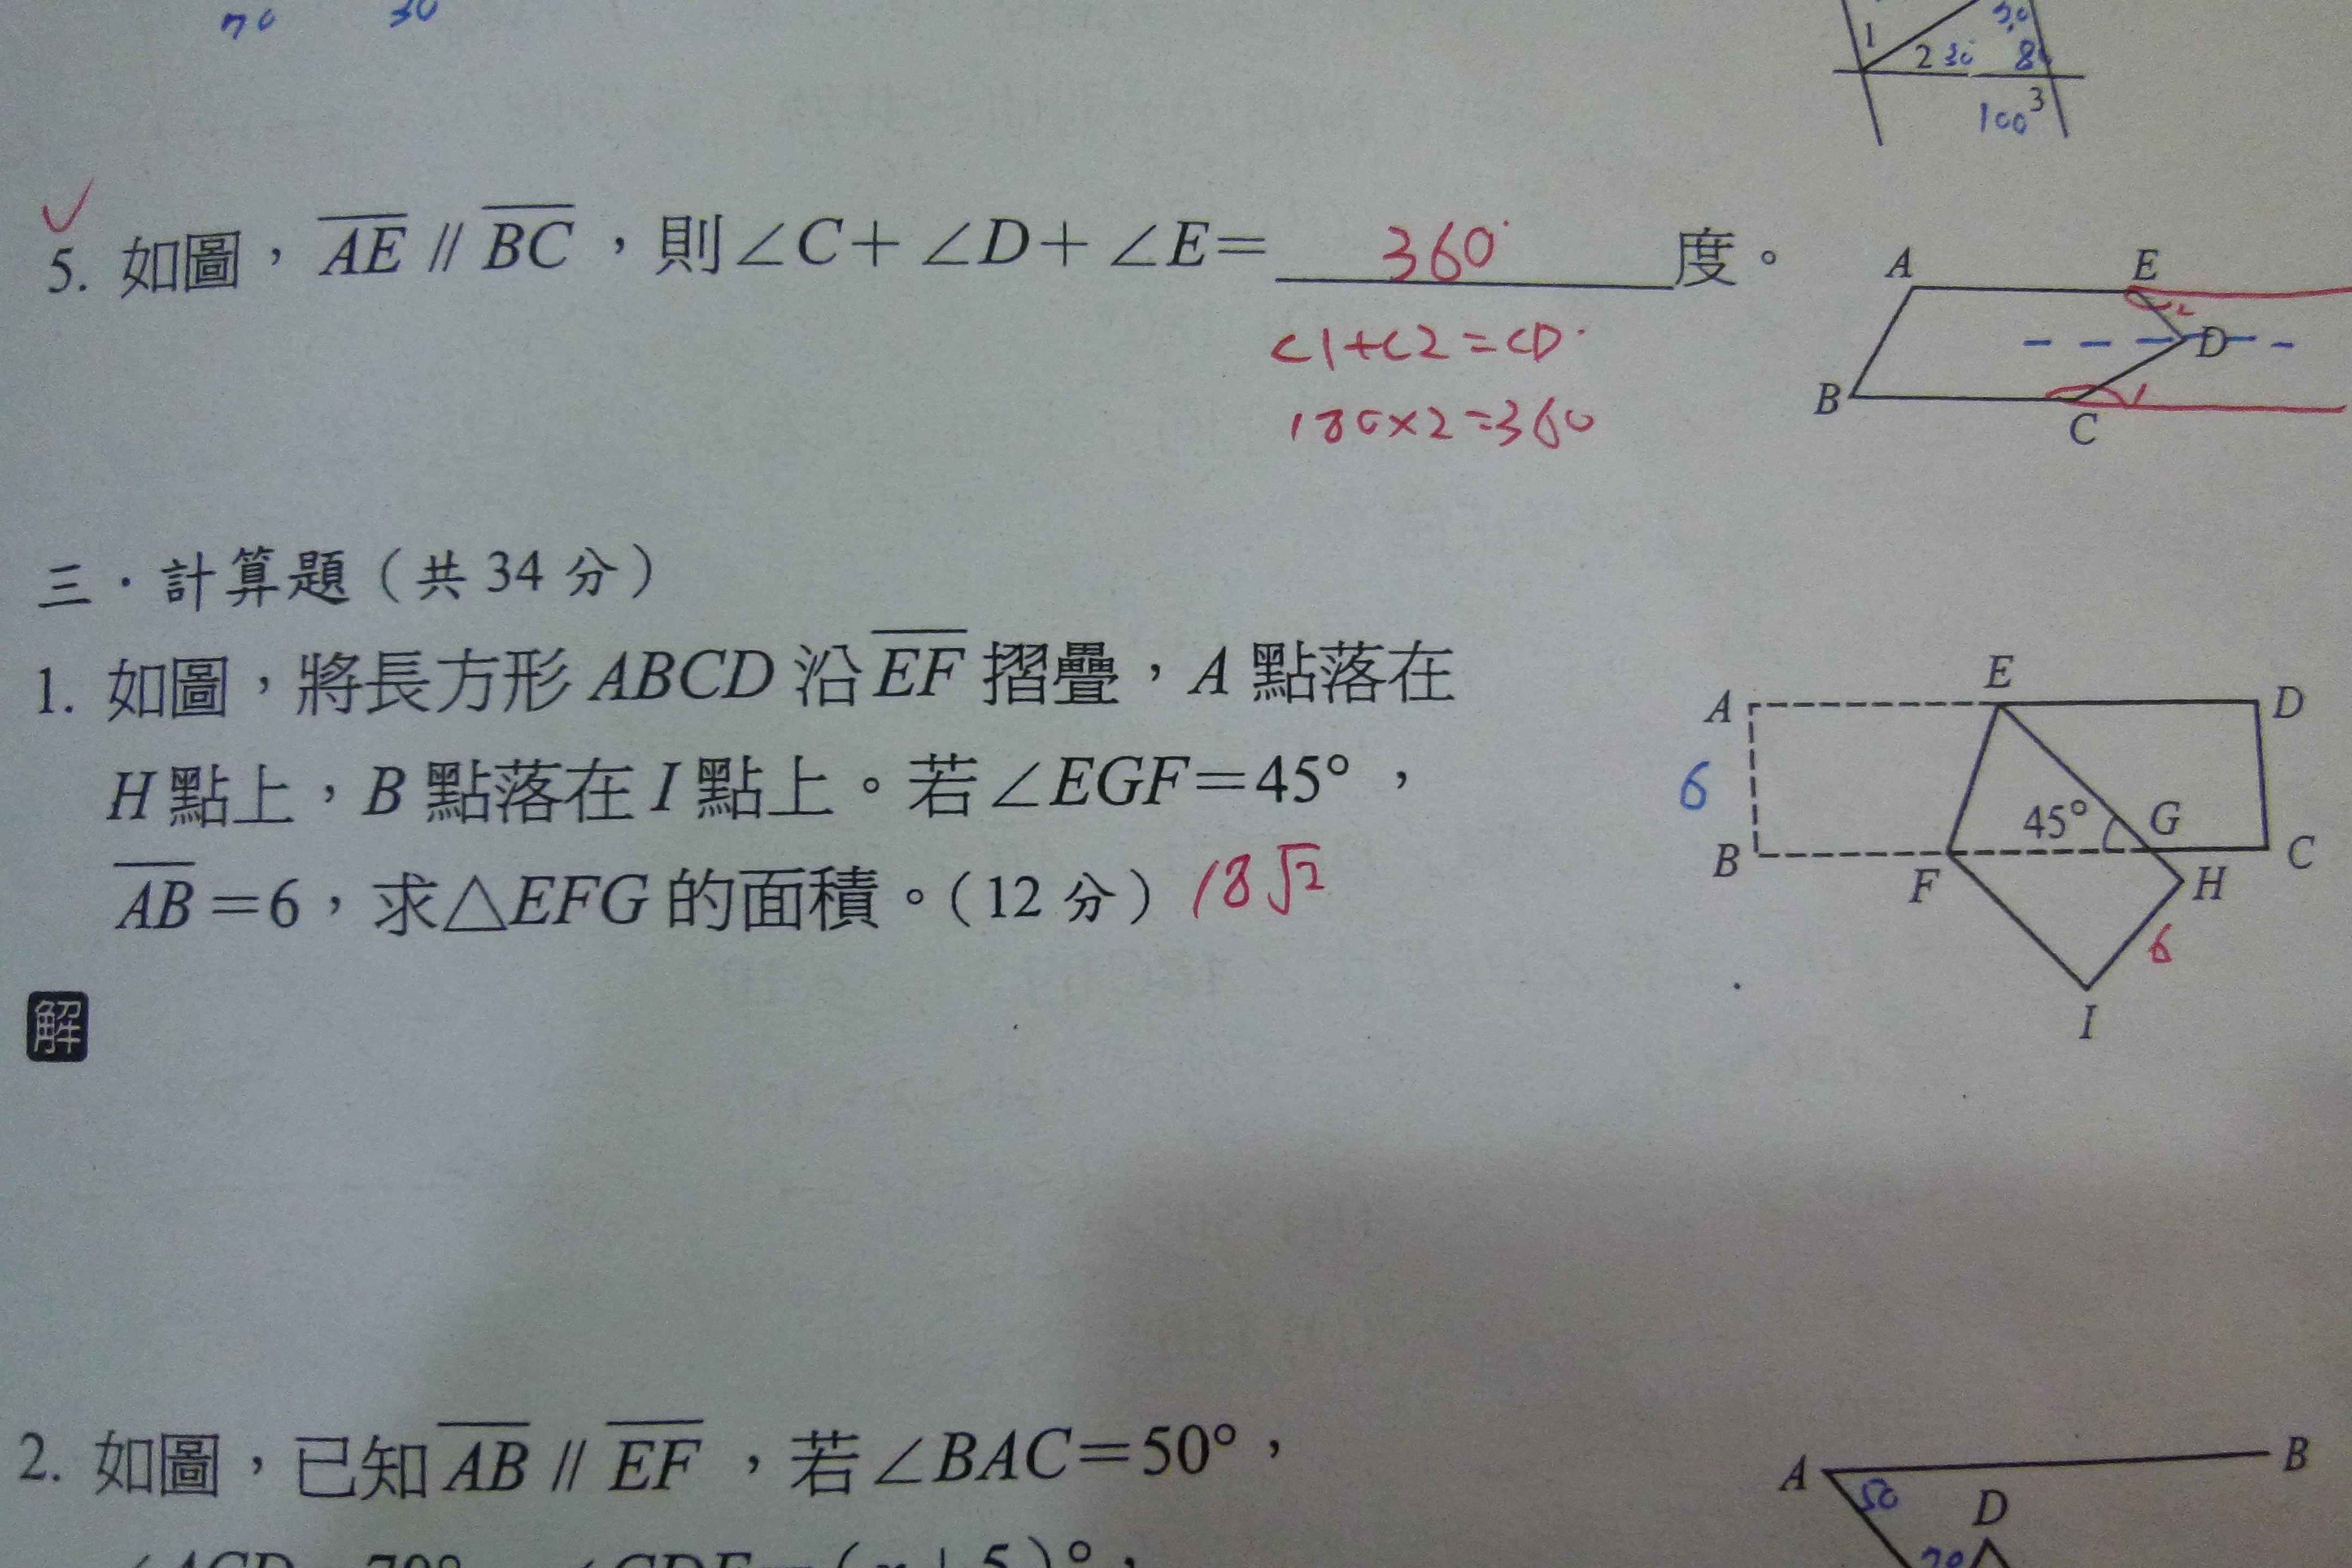 70 30
1
2 30 80
30
3
100
5. 如圖，AE // BC，則∠C+∠D+∠E= 360° 度。
A E
D
B
C
2
1
∠1+∠2=∠D
180×2=360
三．計算題（共 34 分）
1. 如圖，將長方形 ABCD 沿 EF 摺疊，A 點落在
H 點上，B 點落在 I 點上。若∠EGF=45°，
AB=6，求△EFG 的面積。（12 分） 18√2
A E D
6
45° G
B F H C
6
I
解
2. 如圖，已知 AB // EF，若∠BAC=50°，
A B
50 D
70